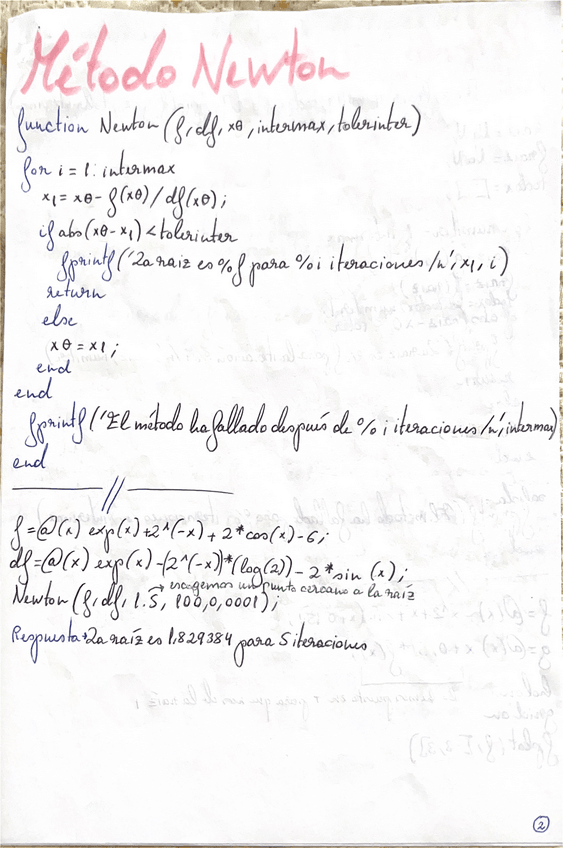 Método Newton
function Newton (f, df, x0, intermax, tolerinter)
for i = 1: intermax
x1 = x0 - f(x0) / df(x0);
if abs (x0 - x1) < tolerinter
fprintf ('La raíz es %f para %i iteraciones /n', x1, i)
return
else
x0 = x1;
end
end
fprintf ('El método ha fallado después de % i iteraciones /n', intermax)
end
f = @(x) exp(x)+2^(-x) + 2*cos(x)-6;
df = @(x) exp(x) - (2^(-x))*(log(2)) - 2*sin (x);
→ escogemos un punto cercano a la raíz
Newton (f, df, 1.5, 100, 0,0001);
Respuesta → La raíz es 1,829384 para 5 iteraciones
2